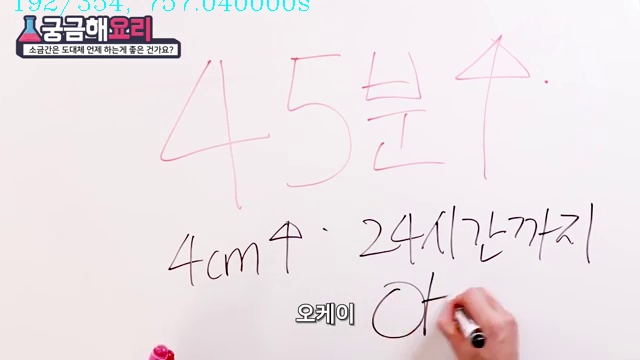 192/354, 757.040000s
궁금해요리
소금간은 도대체 언제 하는게 좋은 건가요?
45분↑.
4cm↑. 24시간까지
아
오케이